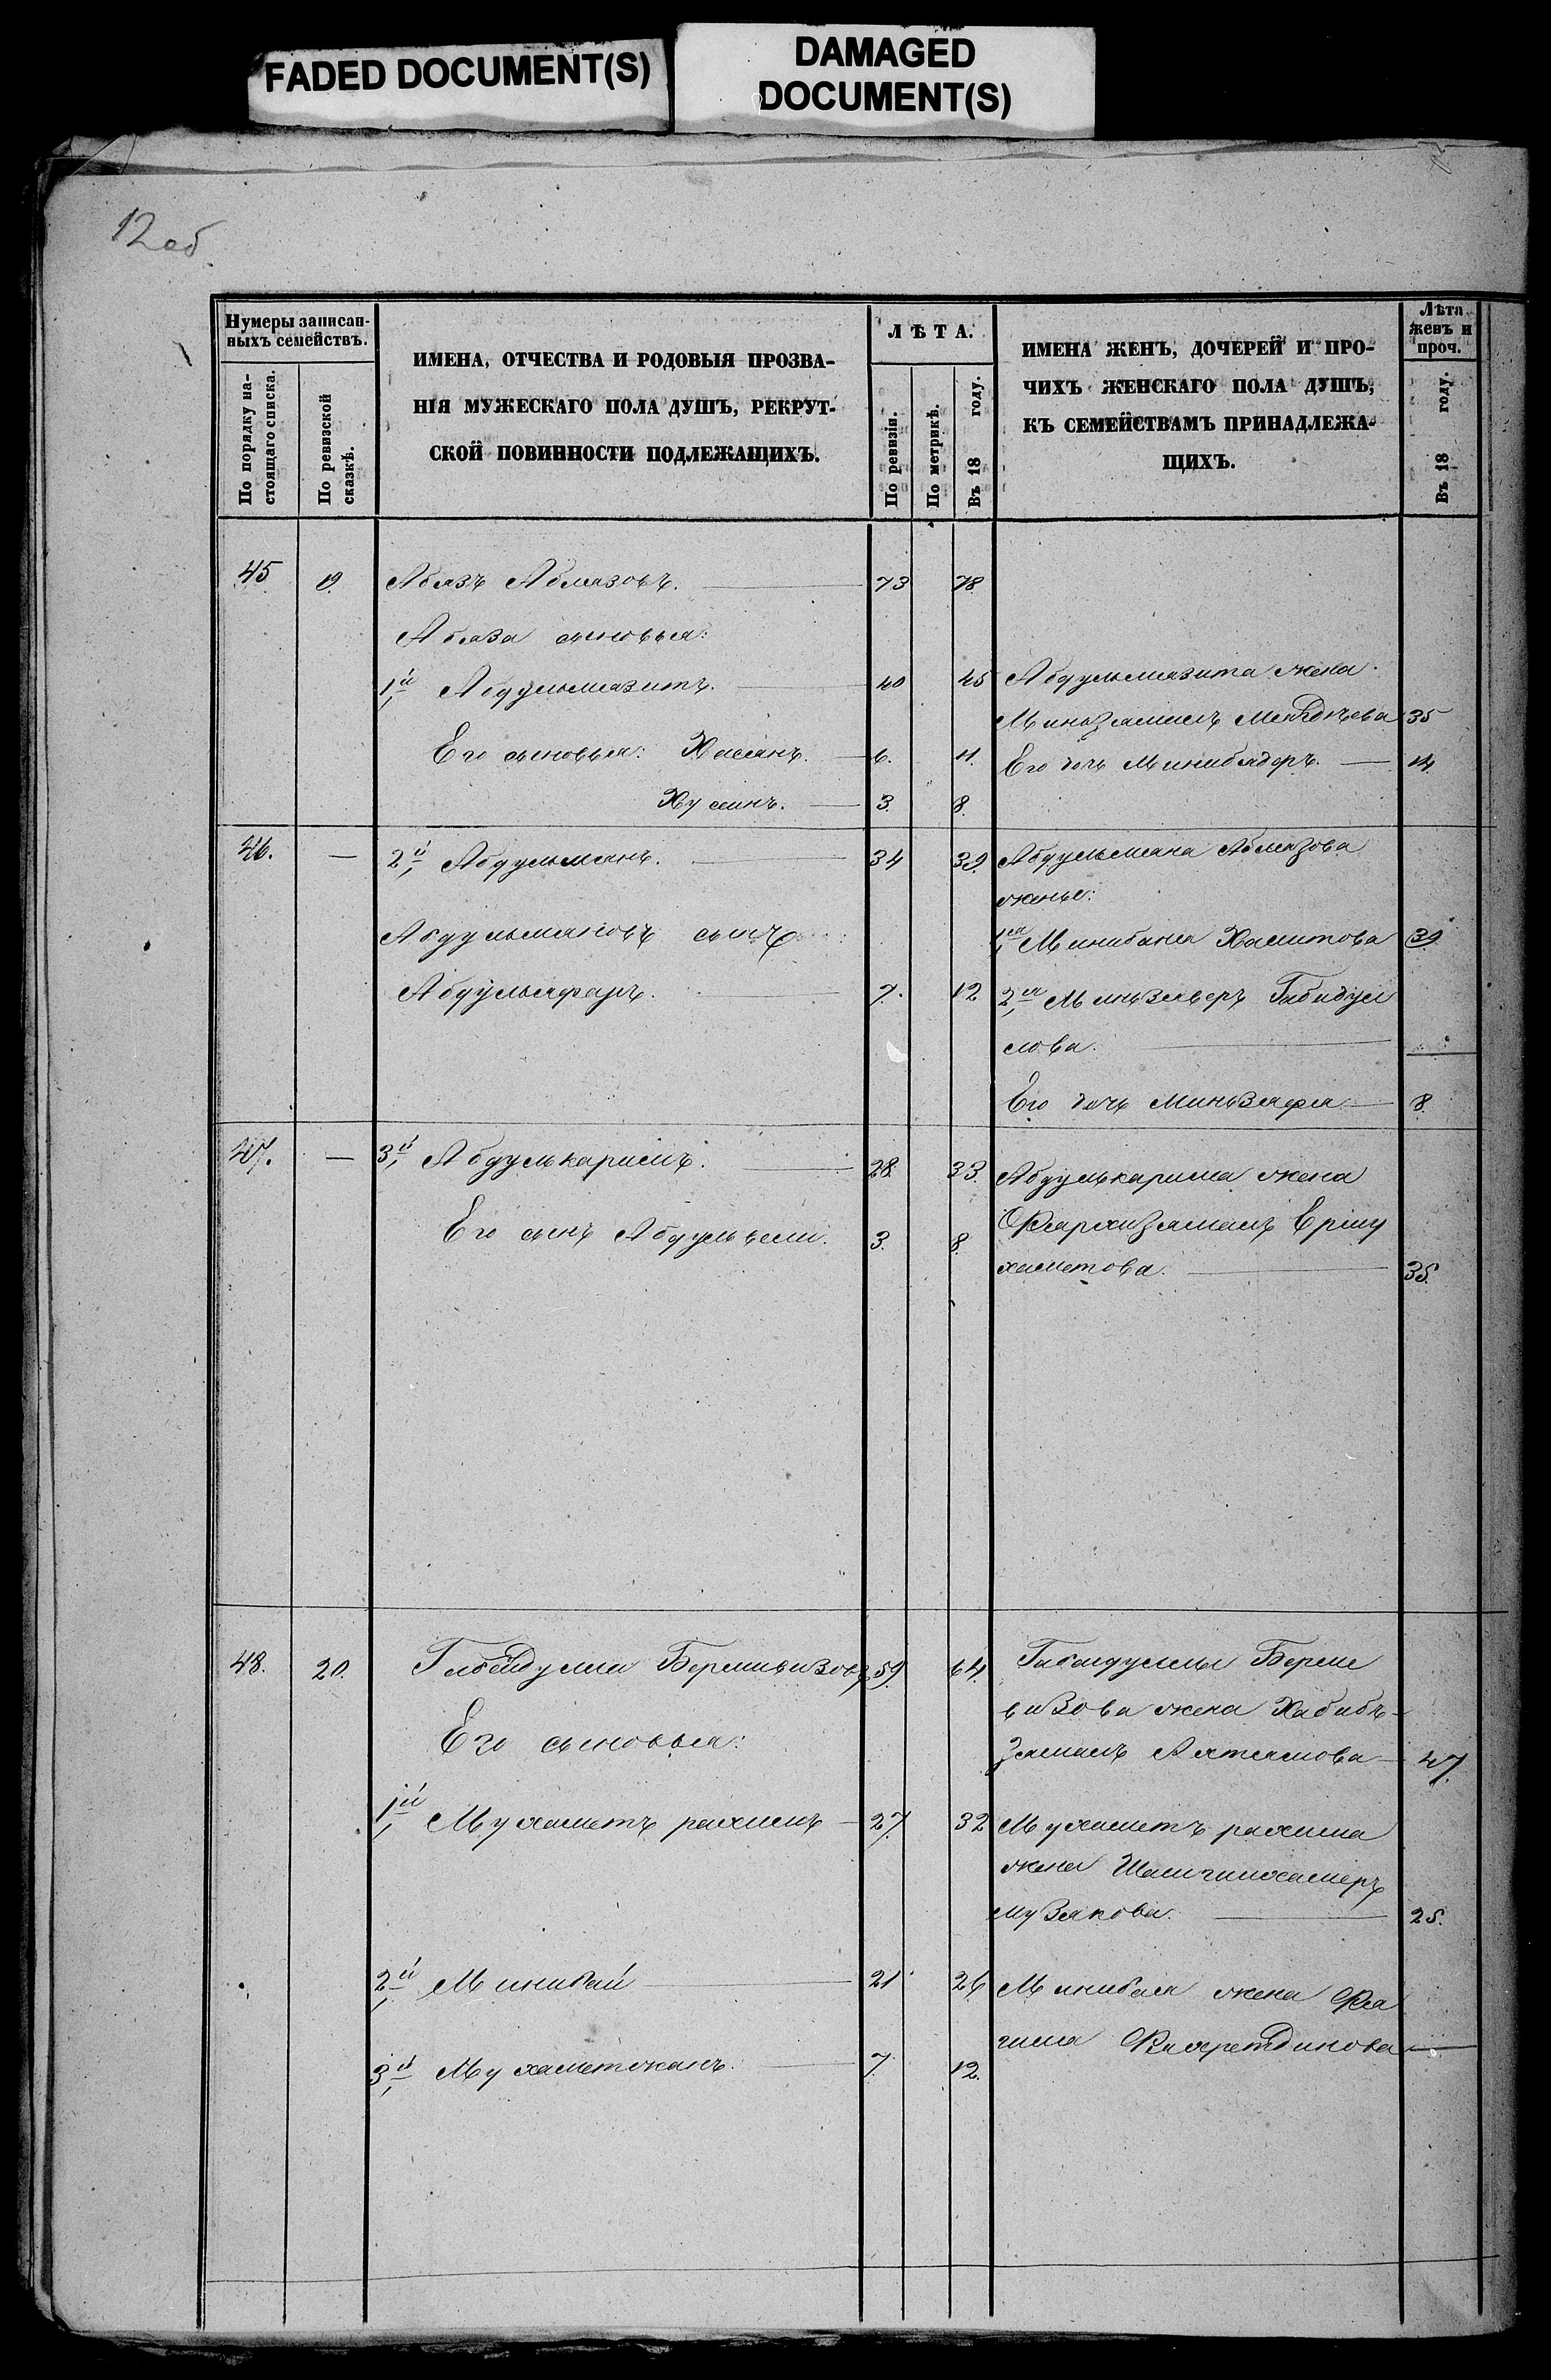 FADED DOCUMENT(S)
DAMAGED
DOCUMENT(S)
12 об.
Нумеры записан-
ныхъ семействъ.
По порядку на-
стоящаго списка.
По ревизской
сказкѣ.
ИМЕНА, ОТЧЕСТВА И РОДОВЫЯ ПРОЗВА-
НІЯ МУЖЕСКАГО ПОЛА ДУШЪ, РЕКРУТ-
СКОЙ ПОВИННОСТИ ПОДЛЕЖАЩИХЪ.
ЛѢТА.
По ревизіи.
По метрикѣ.
Въ 18 году.
ИМЕНА ЖЕНЪ, ДОЧЕРЕЙ И ПРО-
ЧИХЪ ЖЕНСКАГО ПОЛА ДУШЪ,
КЪ СЕМЕЙСТВАМЪ ПРИНАДЛЕЖА-
ЩИХЪ.
Лѣта
женъ и
проч.
Въ 18 году.
45 19. Абязъ Абмязовъ. 73 78
Абяза сыновья:
1й Абдульмязитъ. 40 45 Абдульмязита жена
35
Его сыновья: Хасянъ. 6. 11. Его дочь Минибядеръ. 14.
Хусеинъ. 3. 8.
46. — 2й Абдульмянъ. 34 39. Абдульмяна Абмязова
жены:
Абдульмяновъ сынъ 1я Минибана Хамитова 39.
Абдульяфаръ. 7. 12 2я Габидул
лова.
Его дочь Миньзяфа 8.
47. — 3й Абдулькаримъ. 28. 33. Абдулькарима жена
Его сынъ Абдульвели. 3. 8.
хаметова. 35.
48. 20. Габейдулла 59. 64.
Его сыновья: жена Хабибъ-
47.
1й Мухаметъ рахимъ 27. 32 Мухаметъ рахима
жена
Музякова. 25.
2й Минибай 21 26 Минибая жена Фя
тима Фахретдинова —
3й Мухаметжанъ. 7. 12.